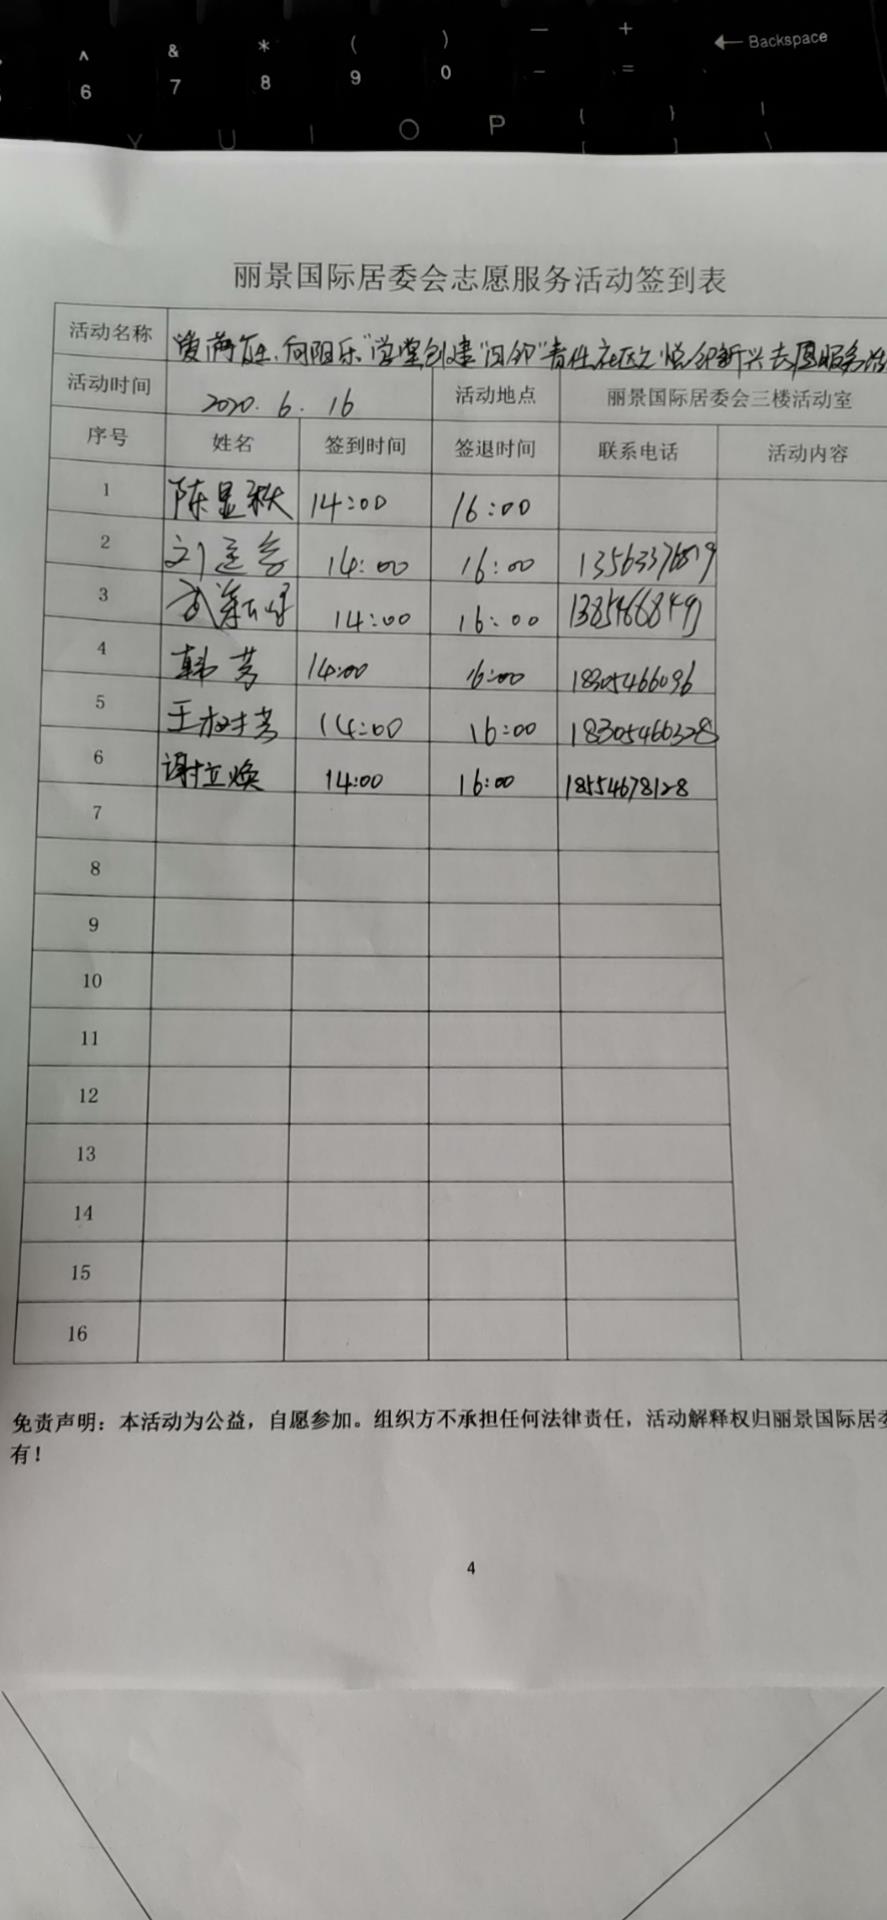 ^ & * ( ) — + ← Backspace
6 7 8 9 0 - =
Y U I O P { } |
[ ] \
丽景国际居委会志愿服务活动签到表
活动名称 向阳乐"学堂创建"四邻"责任社区之悦邻新兴志愿服务活
活动时间 2020.6.16 活动地点 丽景国际居委会三楼活动室
序号 姓名 签到时间 签退时间 联系电话 活动内容
1 陈显秋 14:00 16:00
2 刘 14:00 16:00
3 武 14:00 16:00
4 韩芳 14:00 16:00 18305466096
5 王树芳 14:00 16:00 18305466328
6 谢立焕 14:00 16:00 18554678128
7
8
9
10
11
12
13
14
15
16
免责声明：本活动为公益，自愿参加。组织方不承担任何法律责任，活动解释权归丽景国际居委
有！
4